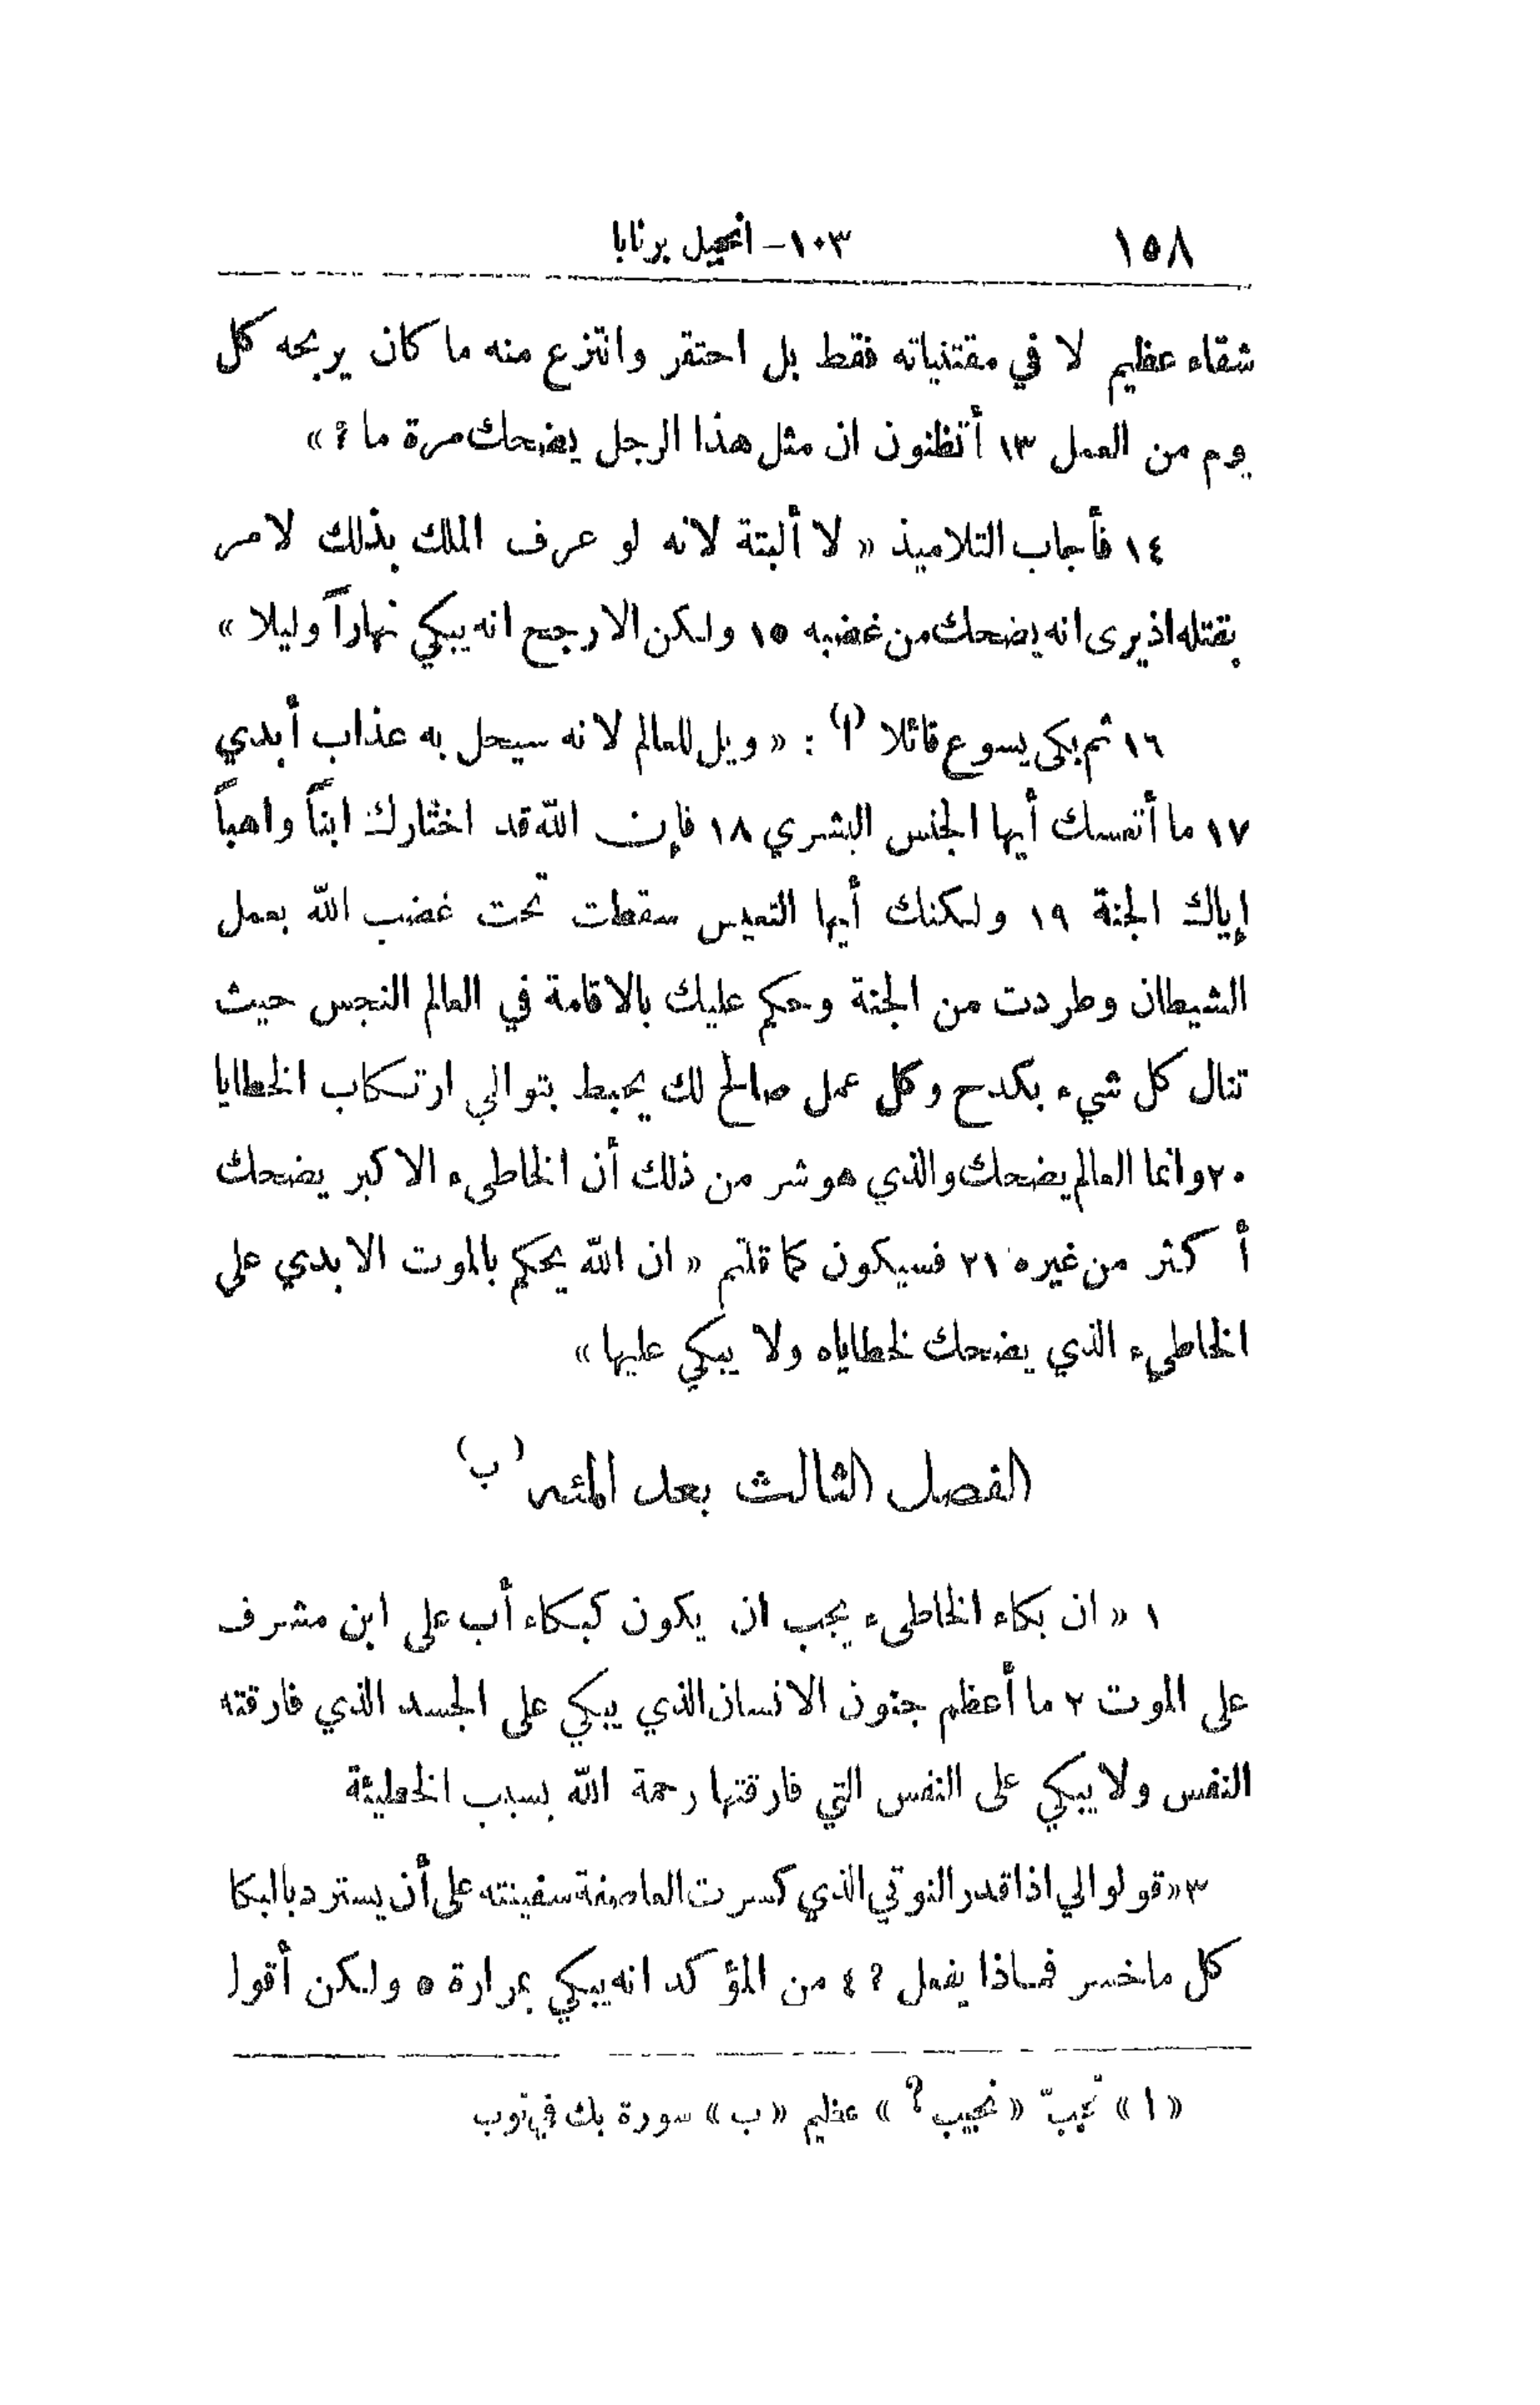 ١٥٨ ١٠٣- انجيل برنابا
شقاء عظيم لا في مقتنياته فقط بل احتقر وانتزع منه ما كان يربحه كل
يوم من العمل ١٣ أتظنون ان مثل هذا الرجل يضحك مرة ما ؟ »
١٤ فأجاب التلاميذ « لا ألبتة لانه لو عرف الملك بذلك لامر
بقتله اذ يرى انه يضحك من غضبه ١٥ ولكن الارجح انه يبكي نهاراً وليلا »
١٦ ثم بكى يسوع قائلا (١) : « ويل للعالم لانه سيحل به عذاب أبدي
١٧ ما أتعسك أيها الجنس البشري ١٨ فإن الله قد اختارك ابناً واهباً
إياك الجنة ١٩ ولكنك أيها التعيس سقطت تحت غضب الله بعمل
الشيطان وطردت من الجنة وحكم عليك بالاقامة في العالم النجس حيث
تنال كل شيء بكدح وكل عمل صالح لك يحبط بتوالي ارتكاب الخطايا
٢٠ وانما العالم يضحك والذي هو شر من ذلك أن الخاطىء الاكبر يضحك
أكثر من غيره ٢١ فسيكون كما قلتم « ان الله يحكم بالموت الابدي على
الخاطىء الذي يضحك لخطاياه ولا يبكي عليها »
الفصل الثالث بعد المئه (ب)
١ « ان بكاء الخاطىء يجب ان يكون كبكاء أب على ابن مشرف
على الموت ٢ ما أعظم جنون الانسان الذي يبكي على الجسد الذي فارقته
النفس ولا يبكي على النفس التي فارقتها رحمة الله بسبب الخطيئة
٣ « قولوا لي اذا قدر النوتي الذي كسرت العاصفة سفينته على أن يسترد بالبكا
كل ما خسر فماذا يفعل ؟ ٤ من المؤكد انه يبكي بمرارة ٥ ولكن أقول
« ١ » تجبّ « نجيب ؟ » عظيم « ب » سورة بك في توب